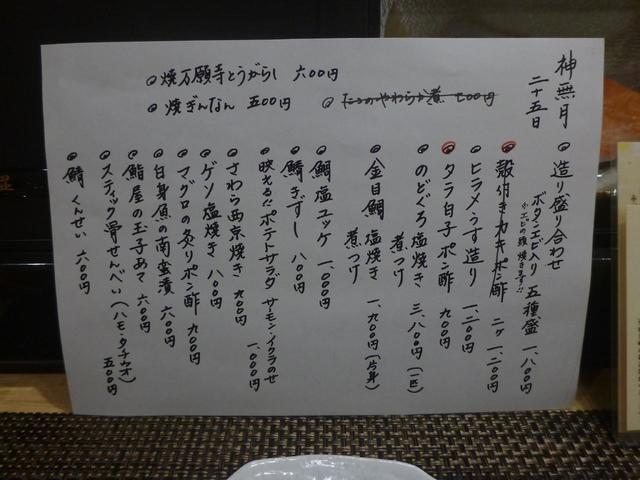 神無月
二十五日
◎造り盛り合わせ
ボタンエビ入り 五種盛 一、八〇〇円
☆エビの頭 焼きます!!
◎殻付きカキポン酢 二ヶ 一、二〇〇円
◎ヒラメうす造り 一、二〇〇円
◎タラ白子ポン酢 九〇〇円
◎のどぐろ塩焼き 煮つけ 三、八〇〇円(一匹)
◎金目鯛 塩焼き 煮つけ 一、九〇〇円(片身)
◎鯛塩ユッケ 一、〇〇〇円
◎鯖きずし 八〇〇円
◎映える!!ポテトサラダ サーモン・イクラのせ 一、〇〇〇円
◎さわら西京焼き 九〇〇円
◎ゲソ塩焼き 八〇〇円
◎マグロの炙りポン酢 九〇〇円
◎白身魚の南蛮漬 六〇〇円
◎鮨屋の玉子あて 六〇〇円
◎スティック骨せんべい(ハモ・タチウオ) 五〇〇円
◎鯖くんせい 六〇〇円
◎焼万願寺とうがらし 六〇〇円
◎焼ぎんなん 五〇〇円
◎たこのやわらか煮 七〇〇円